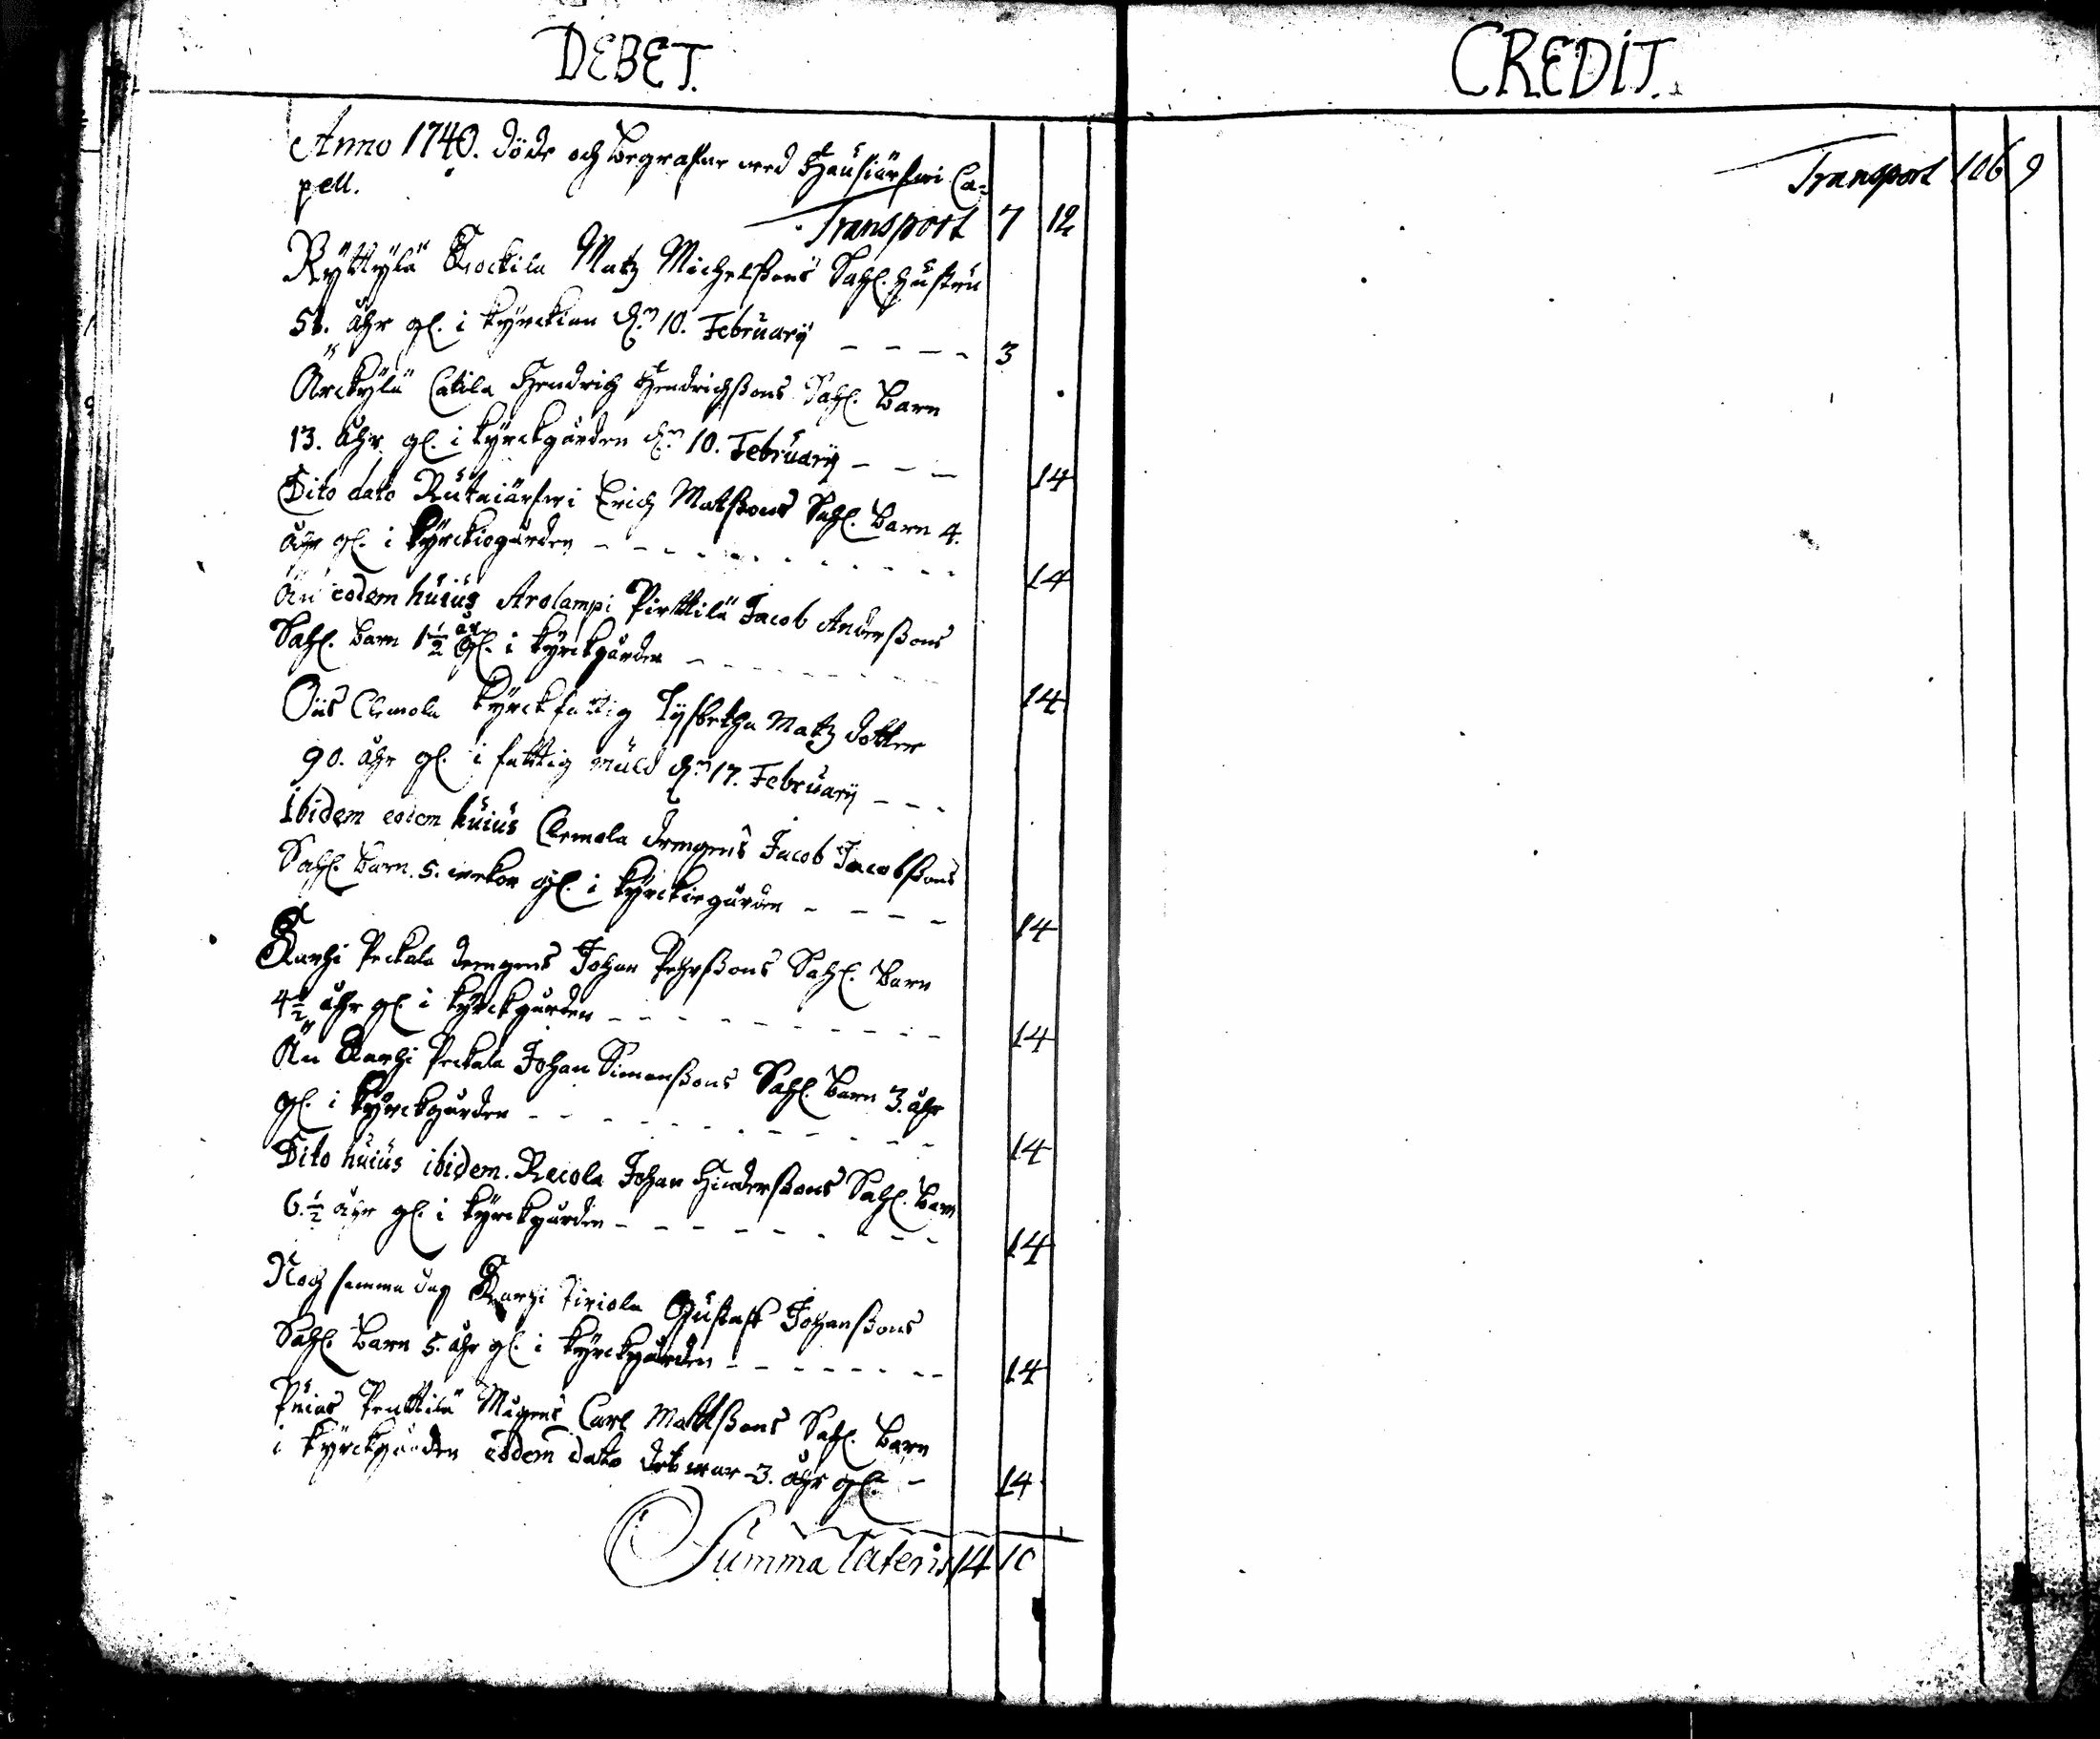 DEBET.
Anno 1740. döde och begrafne wed Hausiärfwi Ca=
pell.
Transport 7 12
Ryttylä Kockila Matz Michelßons Sahl. hustru
51. åhr gl. i kyrckian d. 10. February - - - - 3
Arckylä Catila Hendrich Hendrichßons Sahl. Barn
13. åhr gl. i kyrckgården d. 10. February - - - 14
Dito dato Rutaiärfwi Erich Matßons Sahl. barn 4.
åhr gl. i kyrckiogården - - - - - - - - - - 14
Än eodem huius Arolampi Pirttilä Jacob Anderßons
Sahl. barn 1½ år gl. i kyrckgården - - - - - - 14
Oiis Clemola kyrckfattig Lysbetha Matz dotter
90. åhr gl. i fattig muld d. 17. February - - -
Ibidem eodem huius Clemola drengens Jacob Jacobßons
Sahl. barn. 5. wekor gl. i kyrckiogården - - - - 14
Karhi Peckala drengens Johan Pehrßons Sahl. Barn
4½ åhr gl. i kyrckgården - - - - - - - - - - 14
Än Karhi Peckala Johan Simonßons Sahl. Barn 3. åhr
gl. i kyrckgården - - - - - - - - - - - 14
Dito huius ibidem. Recola Johan Hinderßons Sahl. Barn
6.½ åhr gl. i kyrckgården - - - - - - - - - 14
Noch samma dag Karhi Tiriola Gustaff Johanßons
Sahl. Barn 5. åhr gl. i kyrckgården - - - - - - - 14
Puias Penttilä Mågens Carl Mattßons Sahl. Barn
i kyrckgården eodem dato det war 3. åhr gl. - 14
Summa Lateris 14 10
CREDIT.
Transport 106 9